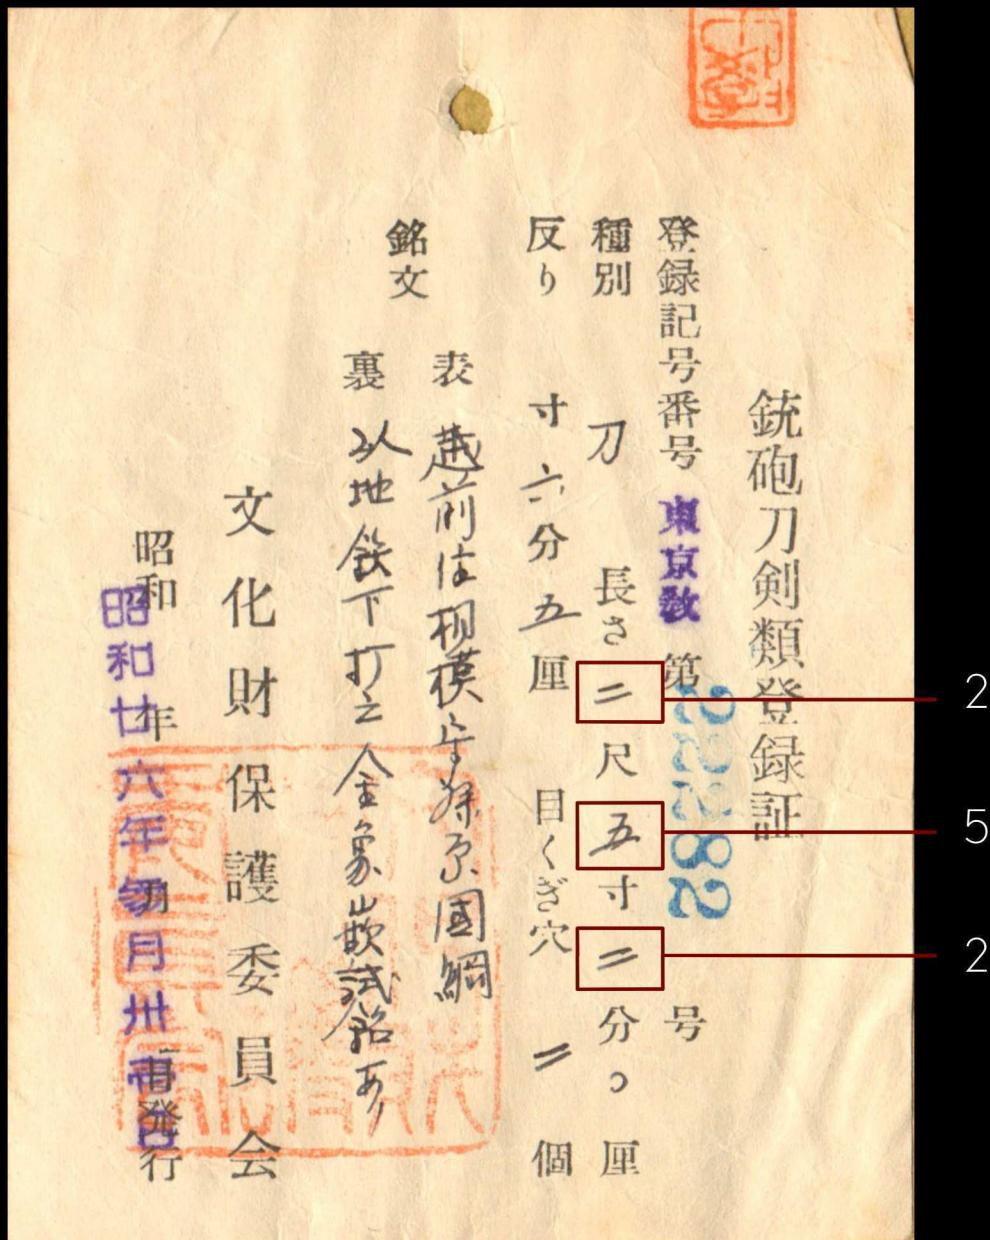 銃砲刀剣類登録証
登録記号番号 東京教 第22282号
種別 刀 長さ 二尺五寸二分〇厘
反り 寸六分五厘 目くぎ穴 二個
銘文
表 越前住相模守藤原国綱
裏 以地鉄下打之 金象嵌試銘あり
文化財保護委員会
昭和 年 月 日発行
昭和廿六年 月卅
2
5
2